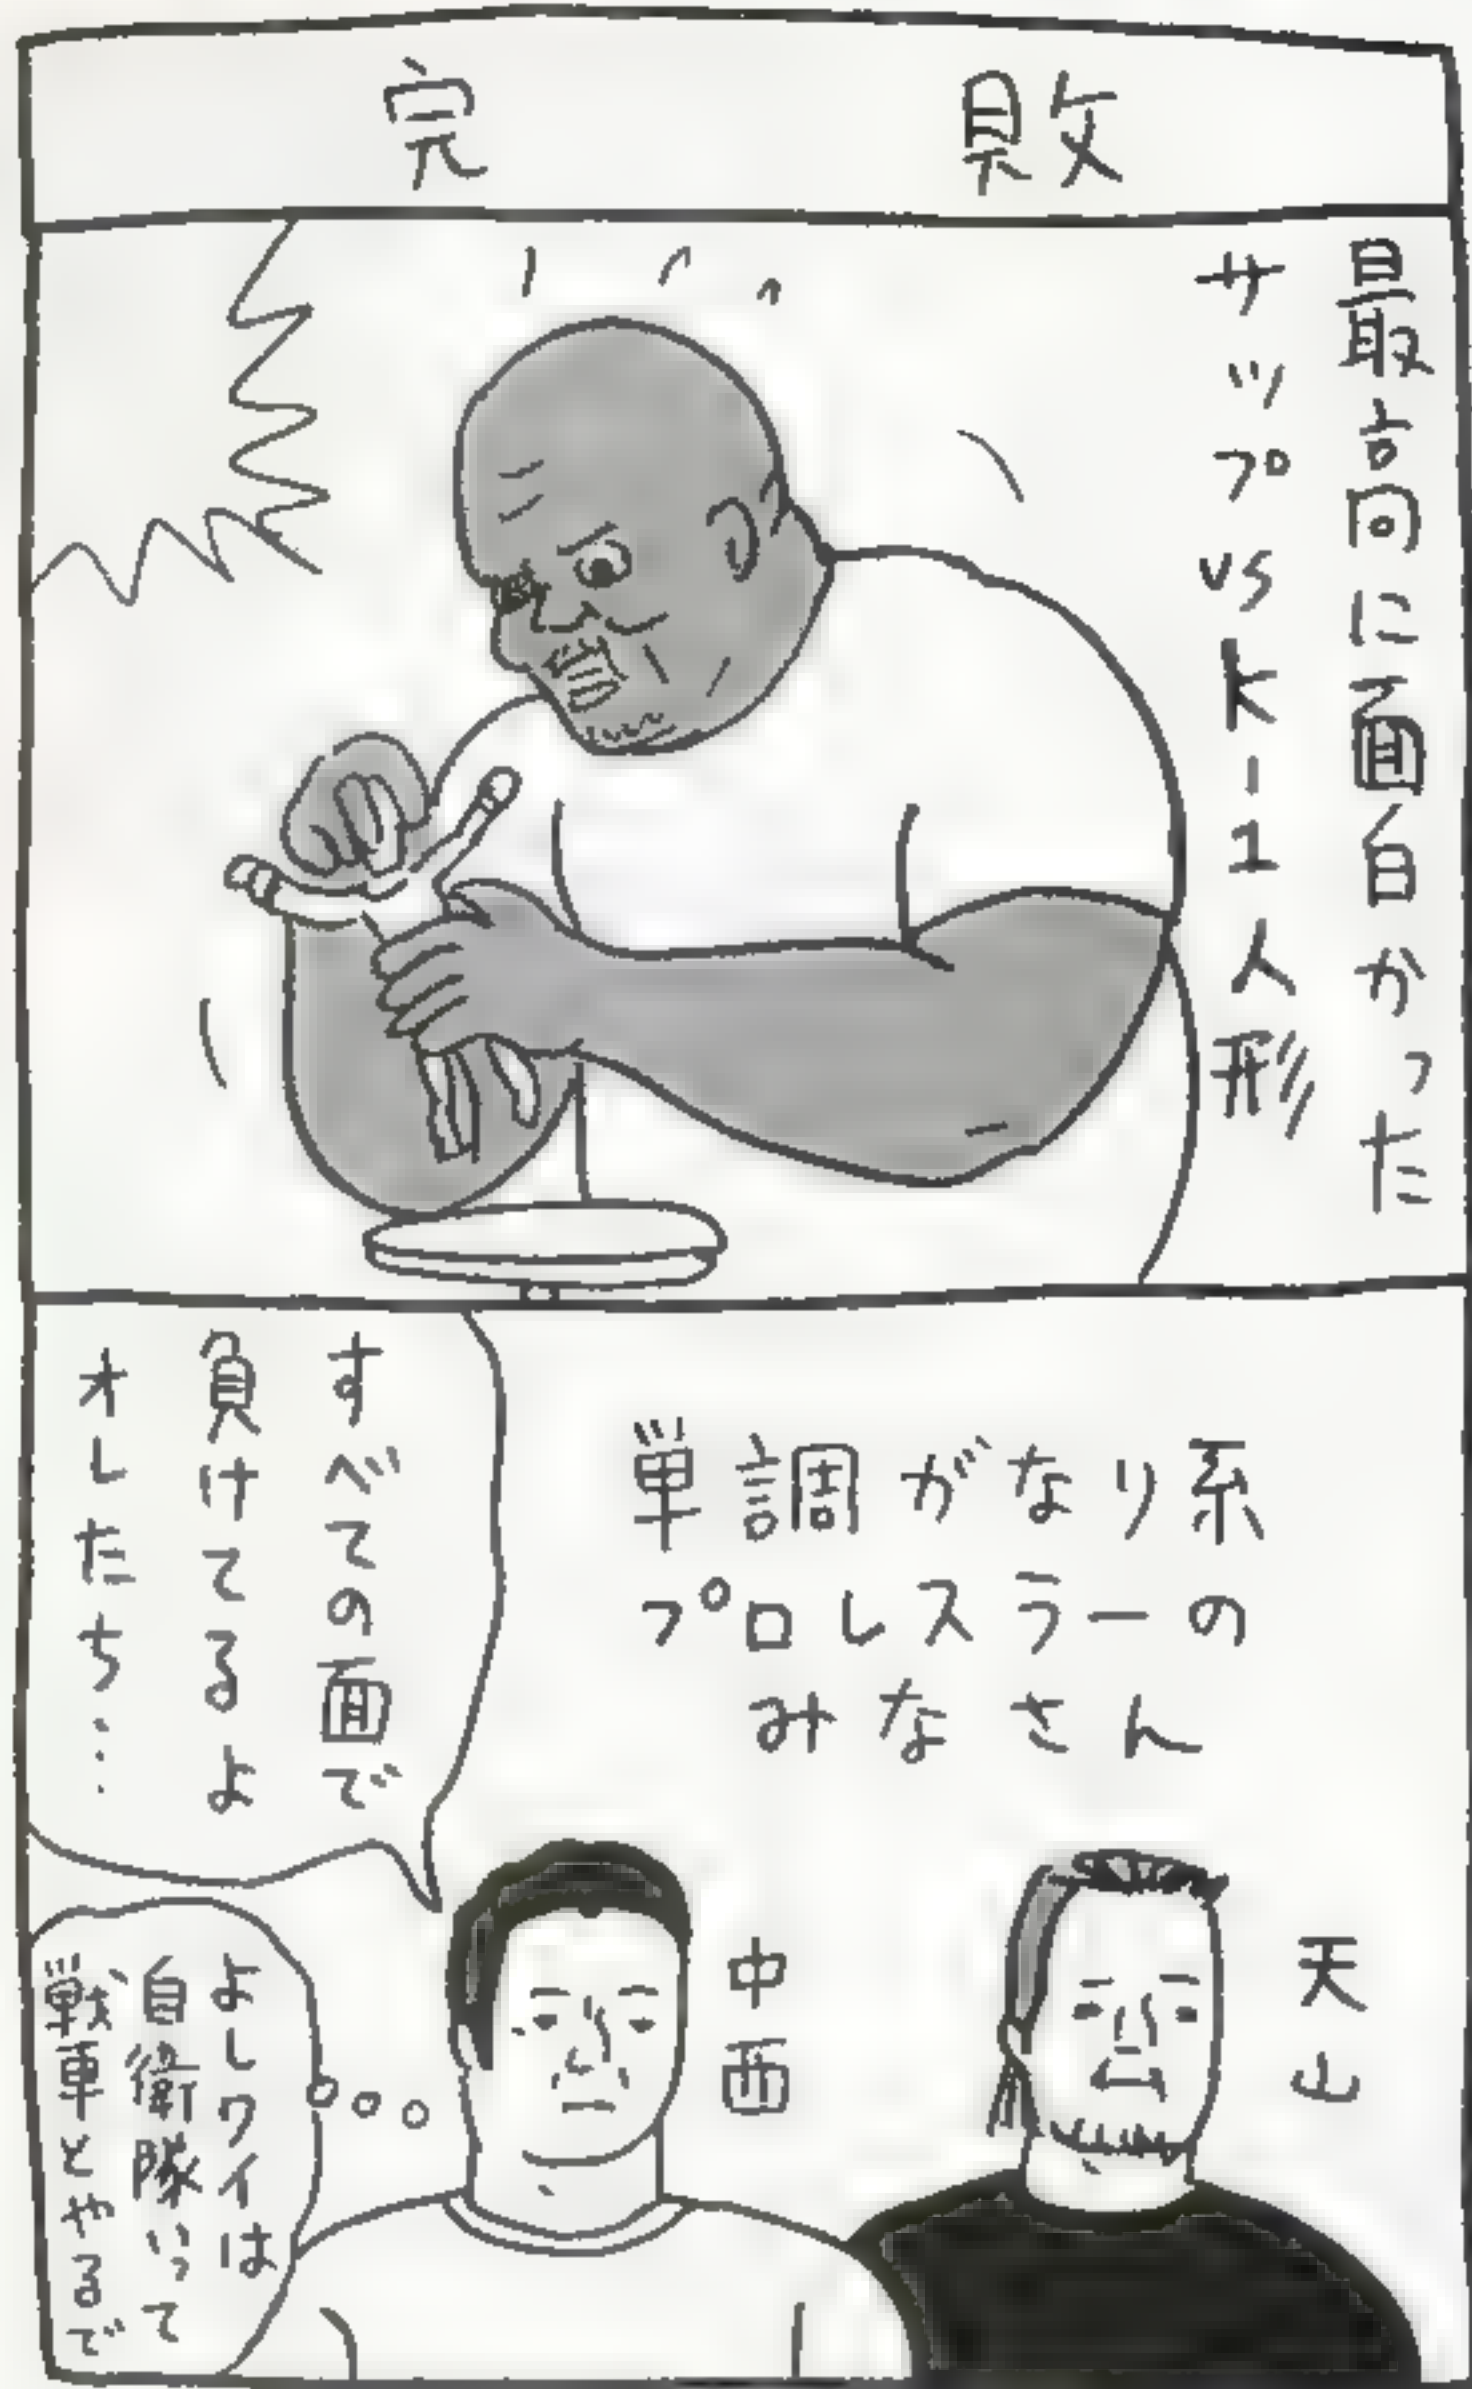 完敗
最高に面白かった
サップvsK-1人形
単調がなり系の
プロレスラーの
みなさん
すべての面で
負けてるよ
オレたち…
天山
中西
よしワイは
自衛隊いって
戦車とやるで